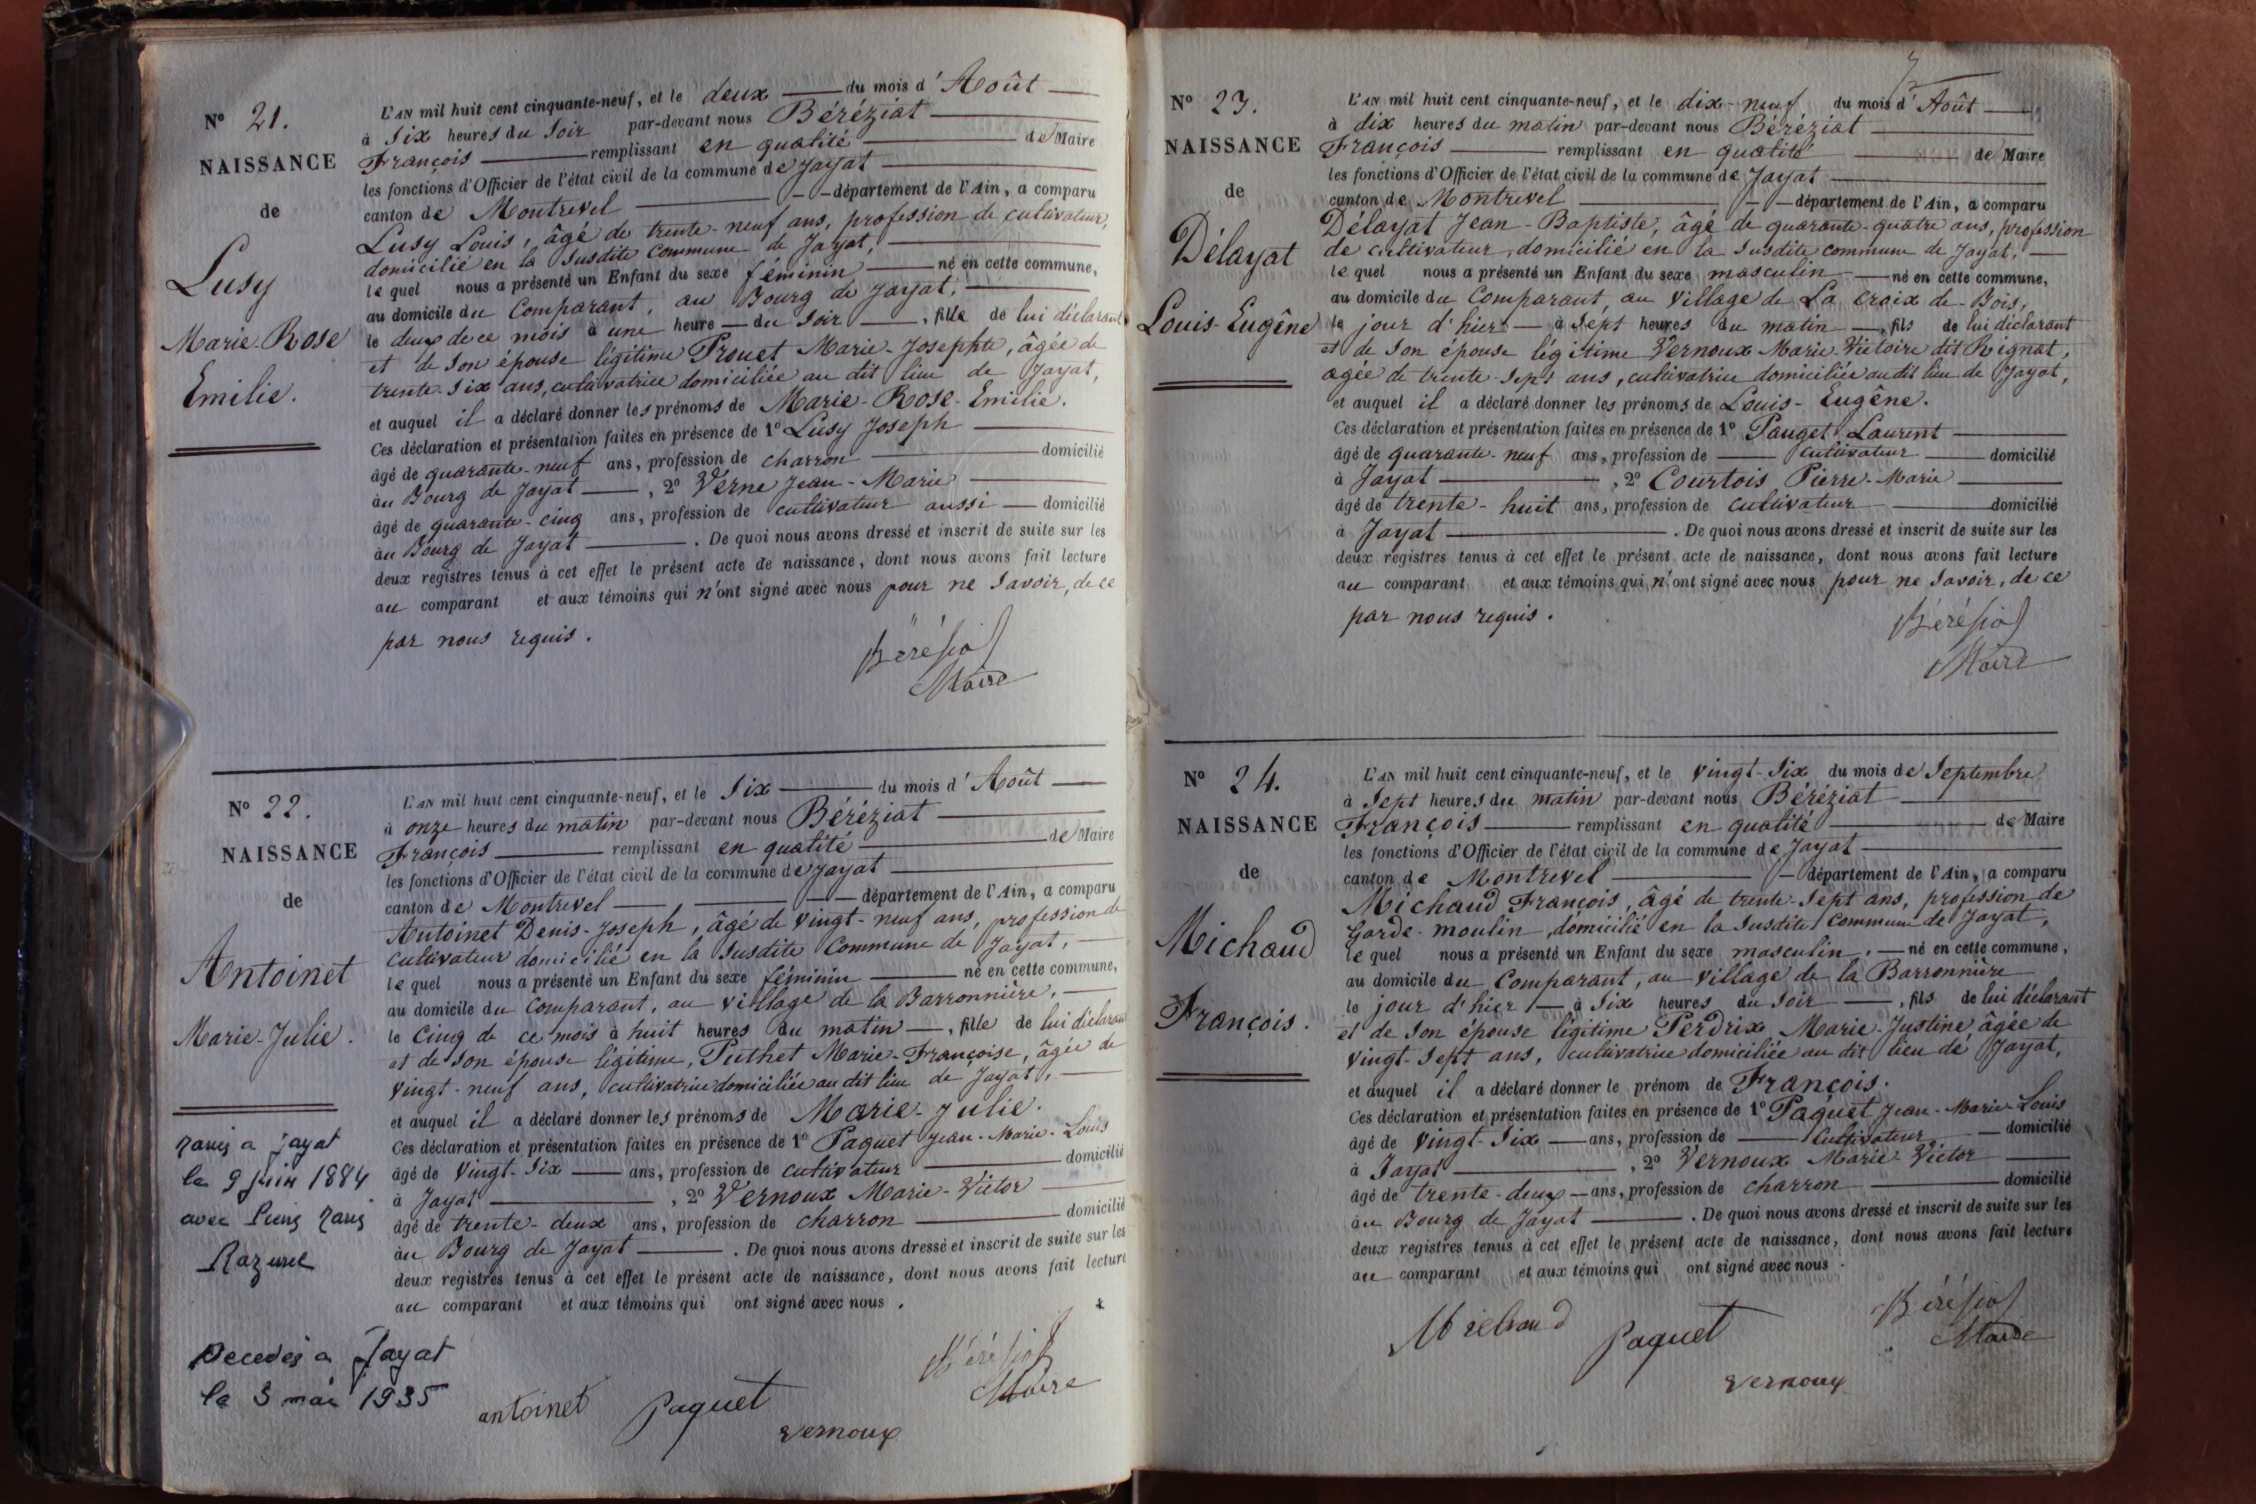 N° 21.
NAISSANCE
de
Lusy
Marie-Rose
Emilie.
L'AN mil huit cent cinquante-neuf, et le deux du mois d'Août
à Six heures du Soir par-devant nous Béréziat
François remplissant en qualité de Maire
les fonctions d'Officier de l'état civil de la commune de Jayat
canton de Montrevel département de l'Ain, a comparu
Lusy Louis, âgé de trente-neuf ans, profession de cultivateur,
domicilié en la Susdite Commune de Jayat,
le quel nous a présenté un Enfant du sexe féminin né en cette commune,
au domicile du Comparant, au Bourg de Jayat,
le deux de ce mois à une heure du Soir, fille de lui déclarant
et de Son épouse légitime Prouet Marie-Josephte, âgée de
trente-Six ans, cultivatrice domiciliée au dit lieu de Jayat,
et auquel il a déclaré donner les prénoms de Marie-Rose-Emilie.
Ces déclaration et présentation faites en présence de 1° Lusy Joseph
âgé de quarante-neuf ans, profession de charron domicilié
au Bourg de Jayat, 2° Verne Jean-Marie
âgé de quarante-cinq ans, profession de cultivateur aussi domicilié
au Bourg de Jayat. De quoi nous avons dressé et inscrit de suite sur les
deux registres tenus à cet effet le présent acte de naissance, dont nous avons fait lecture
au comparant et aux témoins qui n'ont signé avec nous pour ne Savoir, de ce
par nous requis.
Béréziat
Maire
N° 22.
NAISSANCE
de
Antoinet
Marie-Julie.
Marié a Jayat
le 9 juin 1884
avec
Razurel
Décédés a Jayat
le 3 mai 1935
L'AN mil huit cent cinquante-neuf, et le Six du mois d'Août
à onze heures du matin par-devant nous Béréziat
François remplissant en qualité de Maire
les fonctions d'Officier de l'état civil de la commune de Jayat
canton de Montrevel département de l'Ain, a comparu
Antoinet Denis-Joseph, âgé de vingt-neuf ans, profession de
cultivateur domicilié en la Susdite Commune de Jayat,
le quel nous a présenté un Enfant du sexe féminin né en cette commune,
au domicile du Comparant, au village de la Barronnière,
le Cinq de ce mois à huit heures du matin, fille de lui déclarant
et de Son épouse légitime, Puthet Marie-Françoise, âgée de
vingt-neuf ans, cultivatrice domiciliée au dit lieu de Jayat,
et auquel il a déclaré donner les prénoms de Marie-Julie.
Ces déclaration et présentation faites en présence de 1° Paquet Jean-Marie-Louis
âgé de vingt-Six ans, profession de cultivateur domicilié
à Jayat, 2° Vernoux Marie-Victor
âgé de trente-deux ans, profession de charron domicilié
au Bourg de Jayat. De quoi nous avons dressé et inscrit de suite sur les
deux registres tenus à cet effet le présent acte de naissance, dont nous avons fait lecture
au comparant et aux témoins qui ont signé avec nous.
Béréziat
Maire
antoinet Paquet
vernoux
N° 23.
NAISSANCE
de
Délayat
Louis-Eugêne
L'AN mil huit cent cinquante-neuf, et le dix-neuf du mois d'Août
à dix heures du matin par-devant nous Béréziat
François remplissant en qualité de Maire
les fonctions d'Officier de l'état civil de la commune de Jayat
canton de Montrevel département de l'Ain, a comparu
Délayat Jean-Baptiste, âgé de quarante-quatre ans, profession
de cultivateur, domicilié en la Susdite commune de Jayat,
le quel nous a présenté un Enfant du sexe masculin né en cette commune,
au domicile du Comparant, au village de La Croix de-Bois,
le jour d'hier à Sept heures du matin, fils de lui déclarant
et de Son épouse légitime Vernoux Marie-Victoire dit Rignat,
agée de trente-Sept ans, cultivatrice domiciliée au dit lieu de Jayat,
et auquel il a déclaré donner les prénoms de Louis-Eugêne.
Ces déclaration et présentation faites en présence de 1° Pauget Laurent
âgé de quarante-neuf ans, profession de Cultivateur domicilié
à Jayat, 2° Courtois Pierre-Marie
âgé de trente-huit ans, profession de Cultivateur domicilié
à Jayat. De quoi nous avons dressé et inscrit de suite sur les
deux registres tenus à cet effet le présent acte de naissance, dont nous avons fait lecture
au comparant et aux témoins qui n'ont signé avec nous pour ne Savoir, de ce
par nous requis.
Béréziat
Maire
N° 24.
NAISSANCE
de
Michaud
François.
L'AN mil huit cent cinquante-neuf, et le vingt-Six du mois de Septembre
à Sept heures du matin par-devant nous Béréziat
François remplissant en qualité de Maire
les fonctions d'Officier de l'état civil de la commune de Jayat
canton de Montrevel département de l'Ain, a comparu
Michaud François, âgé de trente-Sept ans, profession de
Garde-moulin, domicilié en la Susdite Commune de Jayat,
le quel nous a présenté un Enfant du sexe masculin, né en cette commune,
au domicile du Comparant, au village de la Barronnière
le jour d'hier à Six heures du Soir, fils de lui déclarant
et de Son épouse légitime Perdrix Marie-Justine âgée de
vingt-Sept ans, cultivatrice domiciliée au dit lieu de Jayat,
et auquel il a déclaré donner le prénom de François.
Ces déclaration et présentation faites en présence de 1° Paquet Jean-Marie-Louis
âgé de vingt-Six ans, profession de Cultivateur domicilié
à Jayat, 2° Vernoux Marie-Victor
âgé de trente-deux ans, profession de charron domicilié
au Bourg de Jayat. De quoi nous avons dressé et inscrit de suite sur les
deux registres tenus à cet effet le présent acte de naissance, dont nous avons fait lecture
au comparant et aux témoins qui ont signé avec nous.
Béréziat
Maire
Michaud Paquet
vernoux